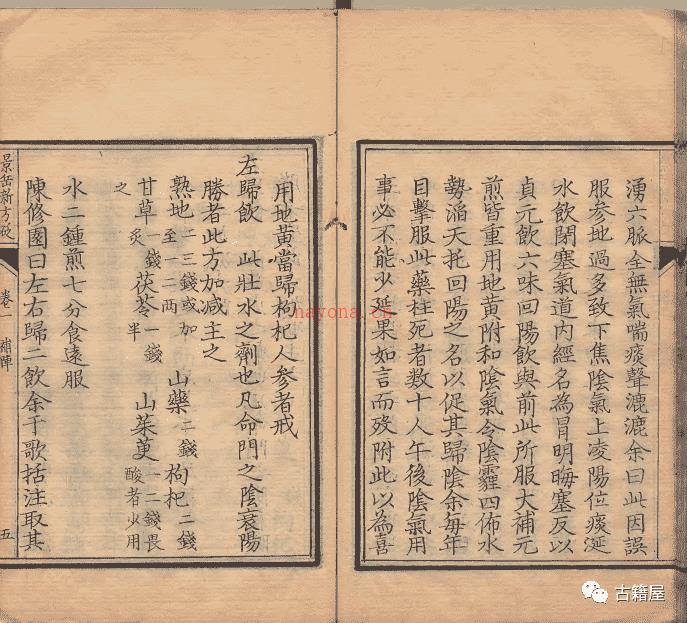 湧六脈全無氣喘痰聲漉漉余曰此因誤
服參地過多致下焦陰氣上凌陽位痰涎
水飲閉塞氣道內經名為冒明晦塞反以
貞元飲六味回陽飲與前此所服大補元
煎皆重用地黃附和陰氣令陰霾四佈水
勢滔天托回陽之名以促其歸陰余每年
目擊服此藥枉死者數十人午後陰氣用
事必不能少延果如言而歿附此以為喜
用地黃當歸枸杞人參者戒
左歸飲 此壯水之劑也凡命門之陰衰陽
勝者此方加減主之
熟地二三錢或加至一二兩 山藥二錢 枸杞二錢
甘草炙一錢 茯苓一錢半 山茱萸一二錢畏酸者少用
之
水二鍾煎七分食遠服
陳修園曰左右歸二飲余于歌括注取其
景岳新方砭
卷一 補陣
五
nayona.cn
古籍屋